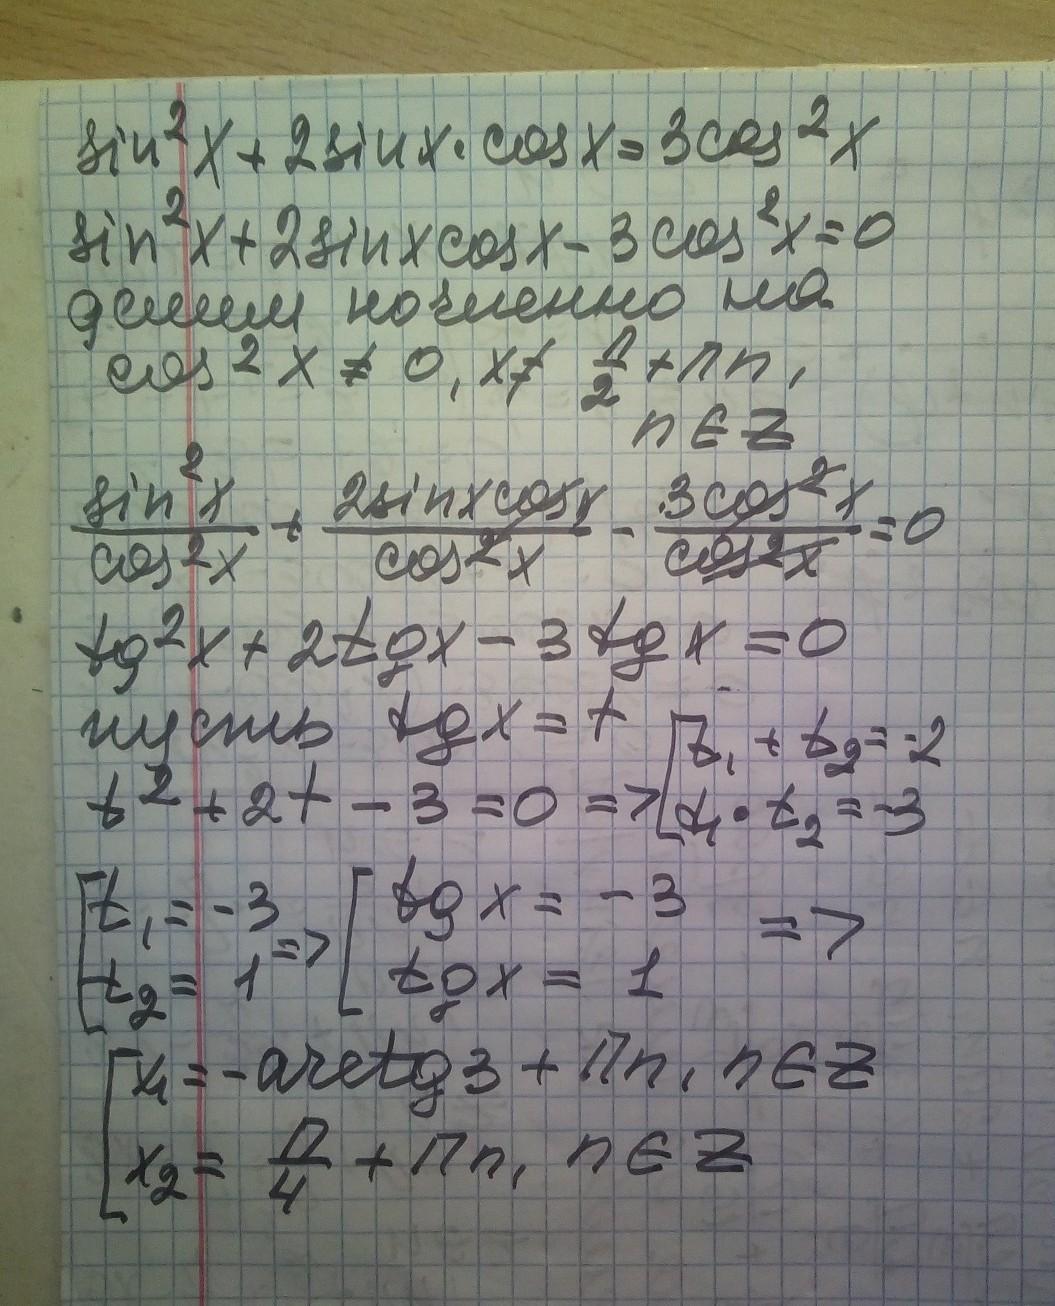 sin²x + 2sinx · cosx = 3cos²x
sin²x + 2sinxcosx - 3cos²x = 0
делим почленно на
cos²x ≠ 0, x ≠ П/2 + Пn,
n ∈ Z
sin²x/cos²x + 2sinxcosx/cos²x - 3cos²x/cos²x = 0
tg²x + 2tgx - 3tgx = 0
пусть tgx = t
t² + 2t - 3 = 0 => [t₁ + t₂ = -2
t₁ · t₂ = -3
[t₁ = -3 => [tgx = -3 =>
t₂ = 1 tgx = 1
[x₁ = -arctg3 + Пn, n ∈ Z
x₂ = П/4 + Пn, n ∈ Z